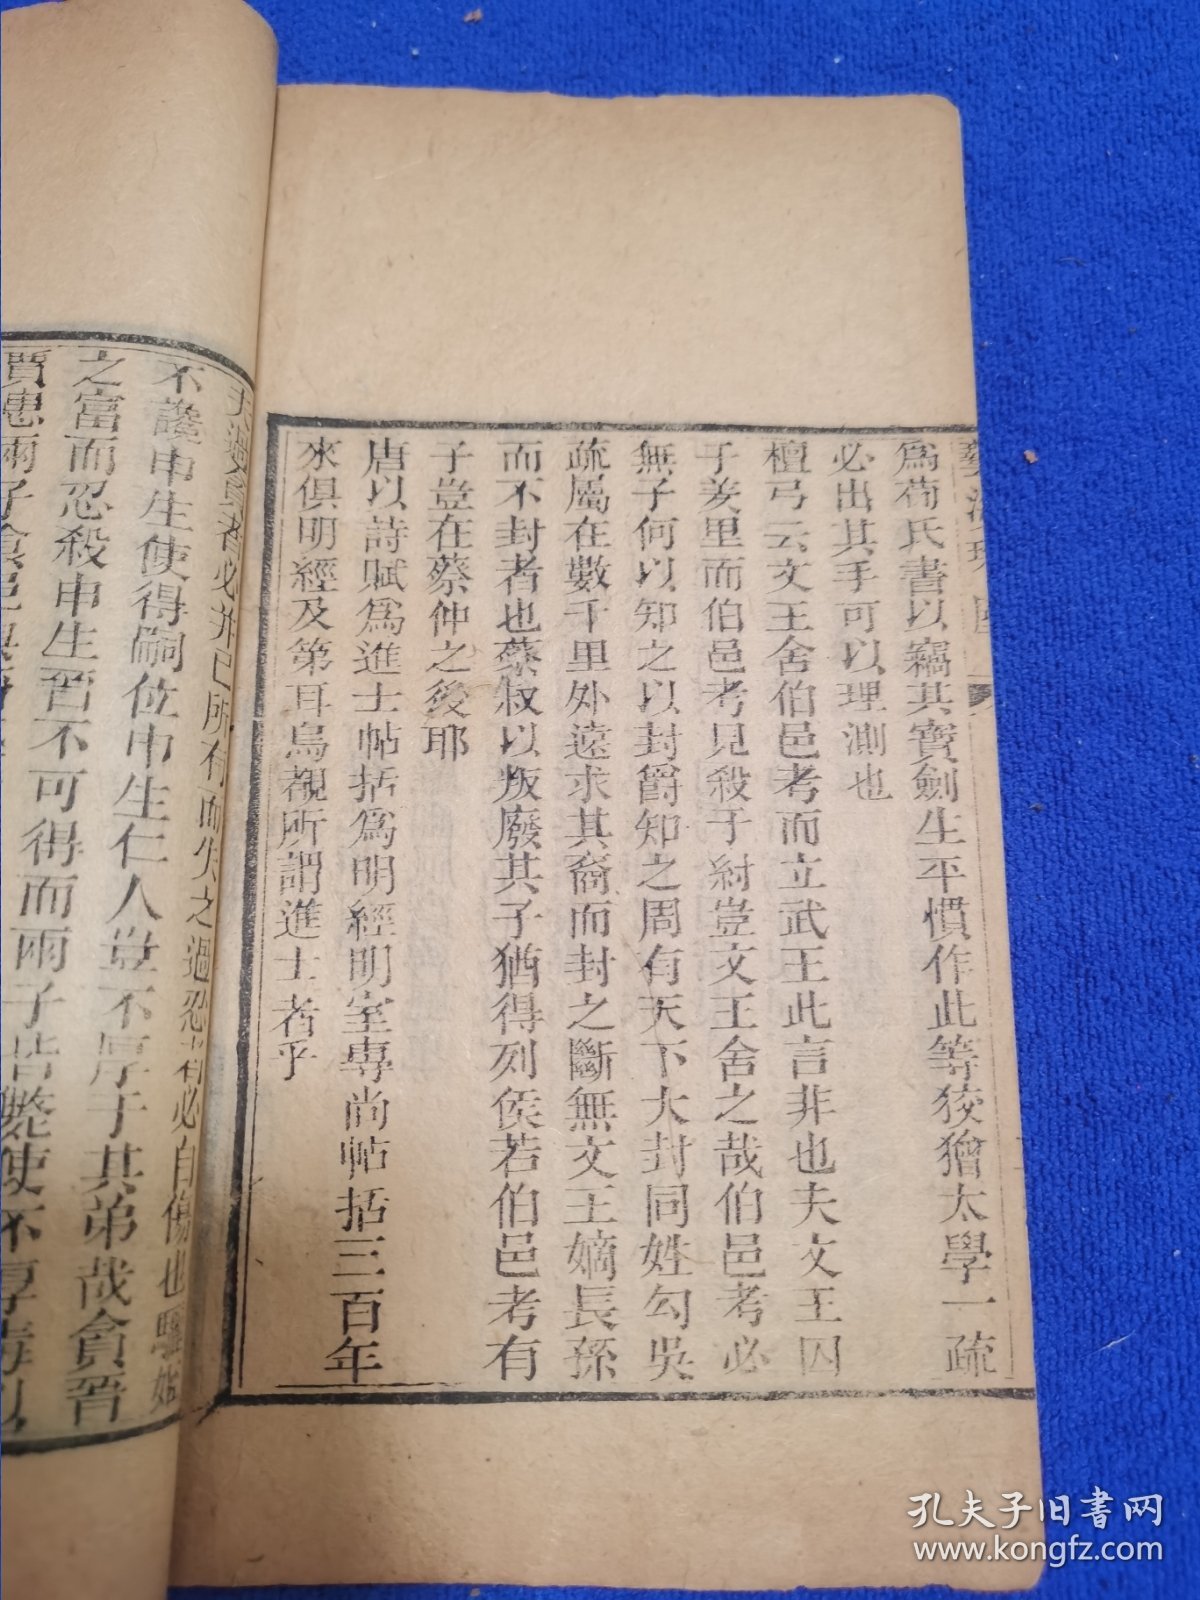 爲荀氏書以竊其寶劍生平慣作此等狡獪太學一疏
必出其手可以理測也
檀弓云文王舍伯邑考而立武王此言非也夫文王囚
于羑里而伯邑考見殺于紂豈文王舍之哉伯邑考必
無子何以知之以封爵知之周有天下大封同姓勾吳
疏屬在數千里外遠求其裔而封之斷無文王嫡長孫
而不封者也蔡叔以叛廢其子猶得列侯若伯邑考有
子豈在蔡仲之後耶
唐以詩賦爲進士帖括爲明經明室專尚帖括三百年
來俱明經及第耳烏覩所謂進士者乎
必并已所有而失之過忍者必自傷也驪姬
不讒申生使得嗣位申生仁人豈不厚于其弟哉貪晉
之富而忍殺申生晉不可得而兩子皆斃使不
孔夫子旧书网
www.kongfz.com